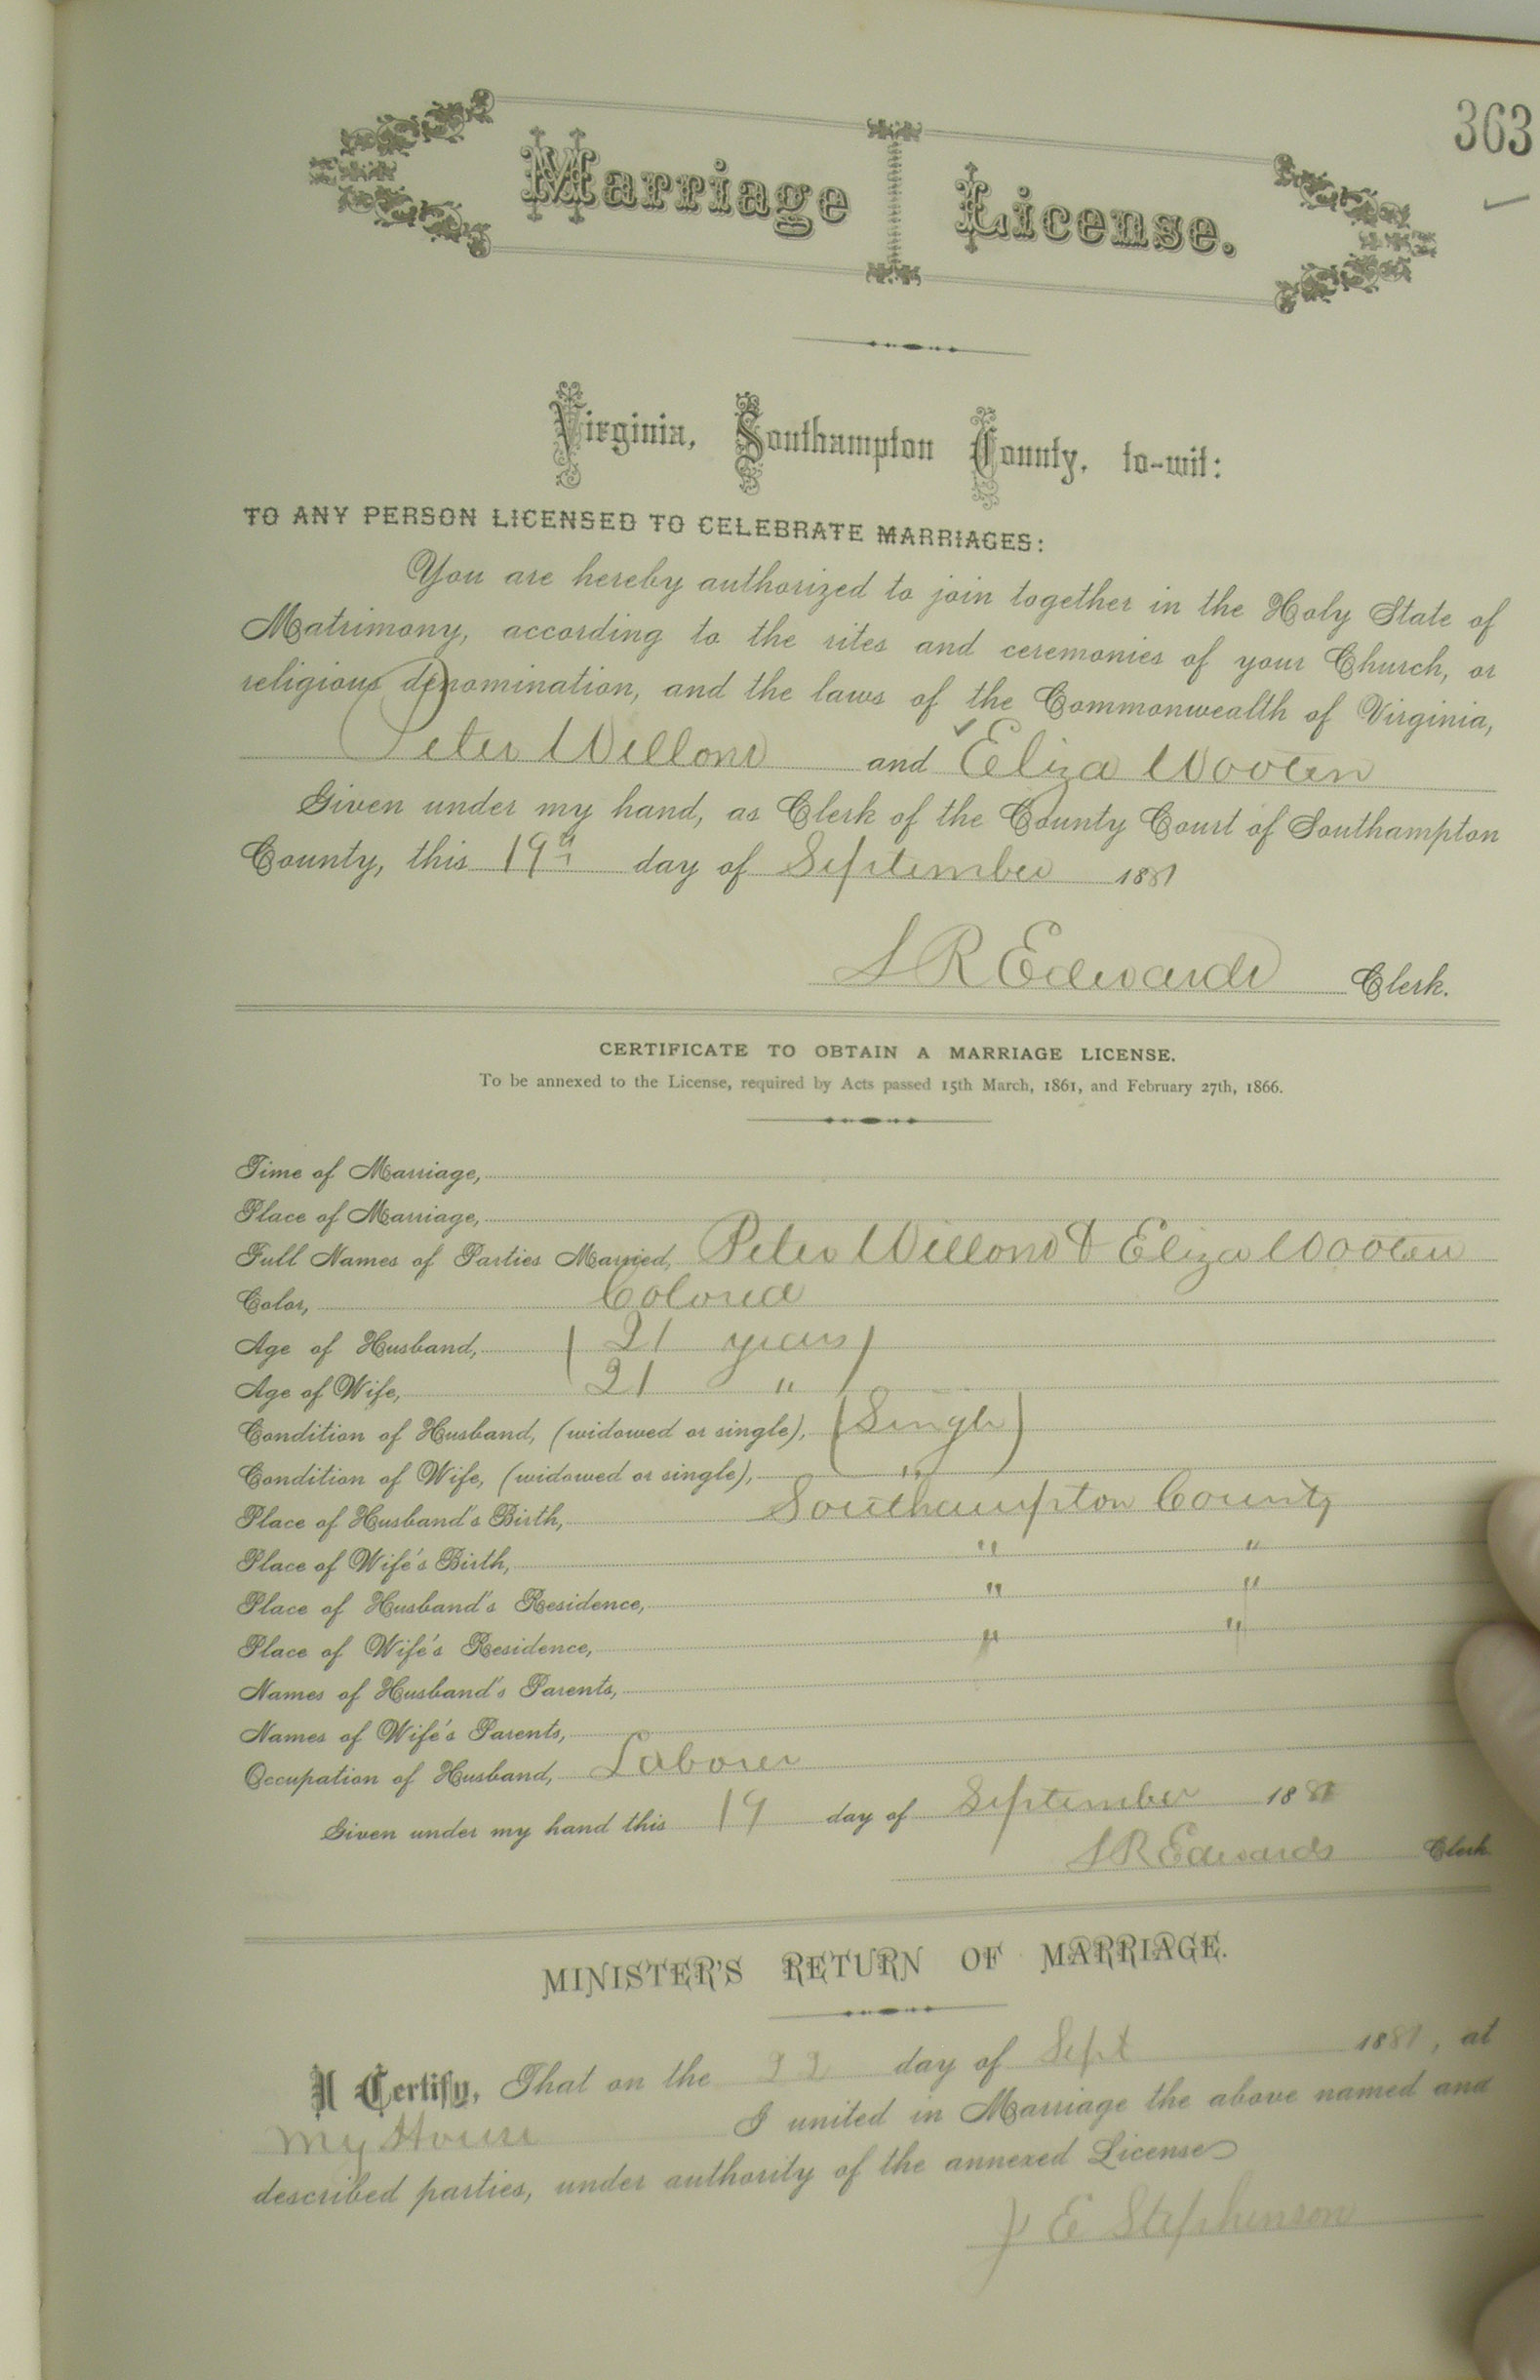 363
Marriage License.
Virginia, Southampton County, to-wit:
TO ANY PERSON LICENSED TO CELEBRATE MARRIAGES:
You are hereby authorized to join together in the Holy State of
Matrimony, according to the rites and ceremonies of your Church, or
religious denomination, and the laws of the Commonwealth of Virginia,
Peter and Eliza Wooten
Given under my hand, as Clerk of the County Court of Southampton
County, this 19th day of September 1881
S R Edwards Clerk.
CERTIFICATE TO OBTAIN A MARRIAGE LICENSE.
To be annexed to the License, required by Acts passed 15th March, 1861, and February 27th, 1866.
Time of Marriage,
Place of Marriage,
Full Names of Parties Married, Peter & Eliza Wooten
Color, Colored
Age of Husband, 21 years
Age of Wife, 21 "
Condition of Husband, (widowed or single), (Single)
Condition of Wife, (widowed or single), "
Place of Husband's Birth, Southampton County
Place of Wife's Birth, " "
Place of Husband's Residence, " "
Place of Wife's Residence, " "
Names of Husband's Parents,
Names of Wife's Parents,
Occupation of Husband, Laborer
Given under my hand this 19 day of September 1881
S R Edwards Clerk.
MINISTER'S RETURN OF MARRIAGE.
I Certify, That on the 22 day of Sept 1881, at
my House I united in Marriage the above named and
described parties, under authority of the annexed License
J E Stephenson